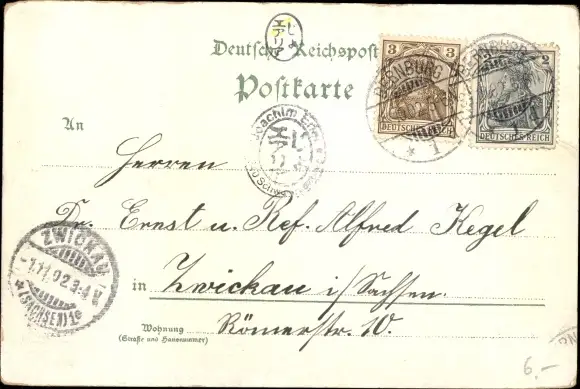 Deutsche Reichspost
Postkarte
3 3
DEUTSCHES REICH
2
DEUTSCHES REICH
* 1
An
Herren
Dr. Ernst u. Ref. Alfred Kegel
in Zwickau i/Sachsen.
Wohnung
(Strasse und Hausnummer)
Römerstr. 10.
ZWICKAU
1.11.02.3-4
(SACHSEN)
Joachim
6.-